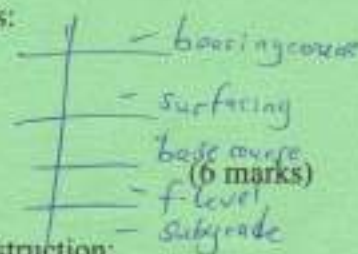 s:
- bearing course
- surfacing
base course
(6 marks)
- f-level
- subgrade
struction: